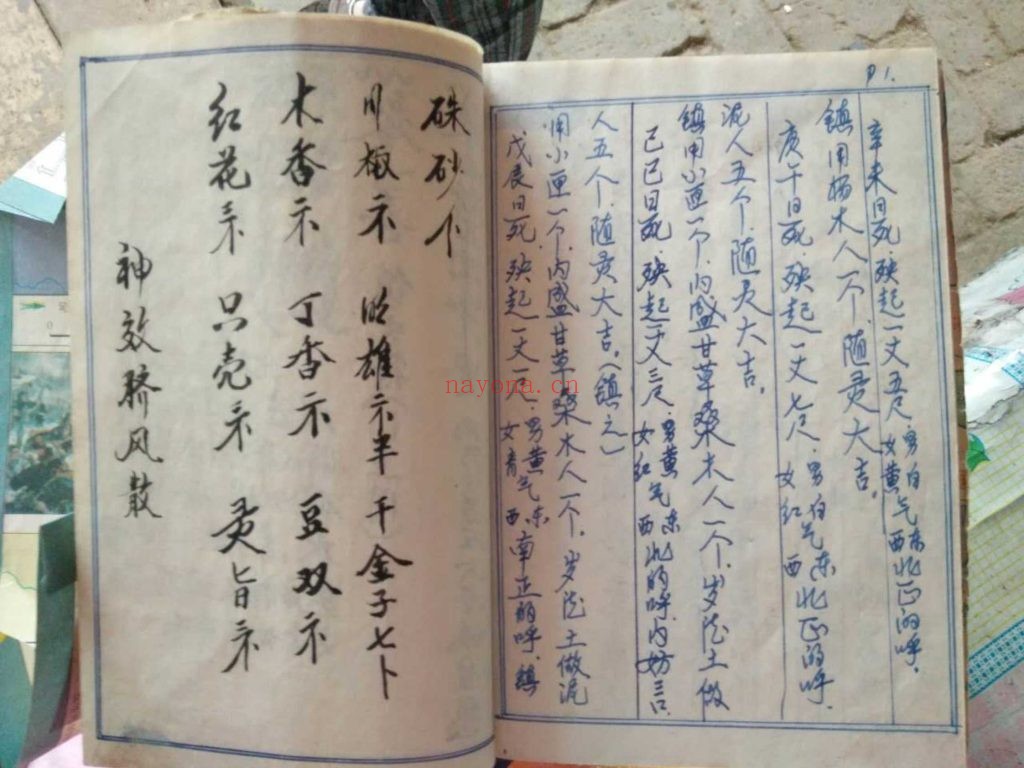 P1.
辛未日死,殃起一丈五尺,男白女黄气东西北正的呼.
镇用杨木人一个,随灵大吉。
庚午日死,殃起一丈七尺,男白女红气东西北正的呼.
泥人五个,随灵大吉。
镇用小匣一个,内盛甘草桑木人一个,岁德土做
己巳日死,殃起一丈三尺,男黄女红气东西北的呼,内妨三口.
人五个,随灵大吉。(镇之)
用小匣一个,内盛甘草桑木人一个,岁德土做泥
戊辰日死,殃起一丈一尺,男黄女青气东西南正的呼,镇
硃砂个
川椒示 明雄示半 千金子七卜
木香示 丁香示 豆双示
红花示 只壳示 灵旨示
神效脐风散
nayona.cn